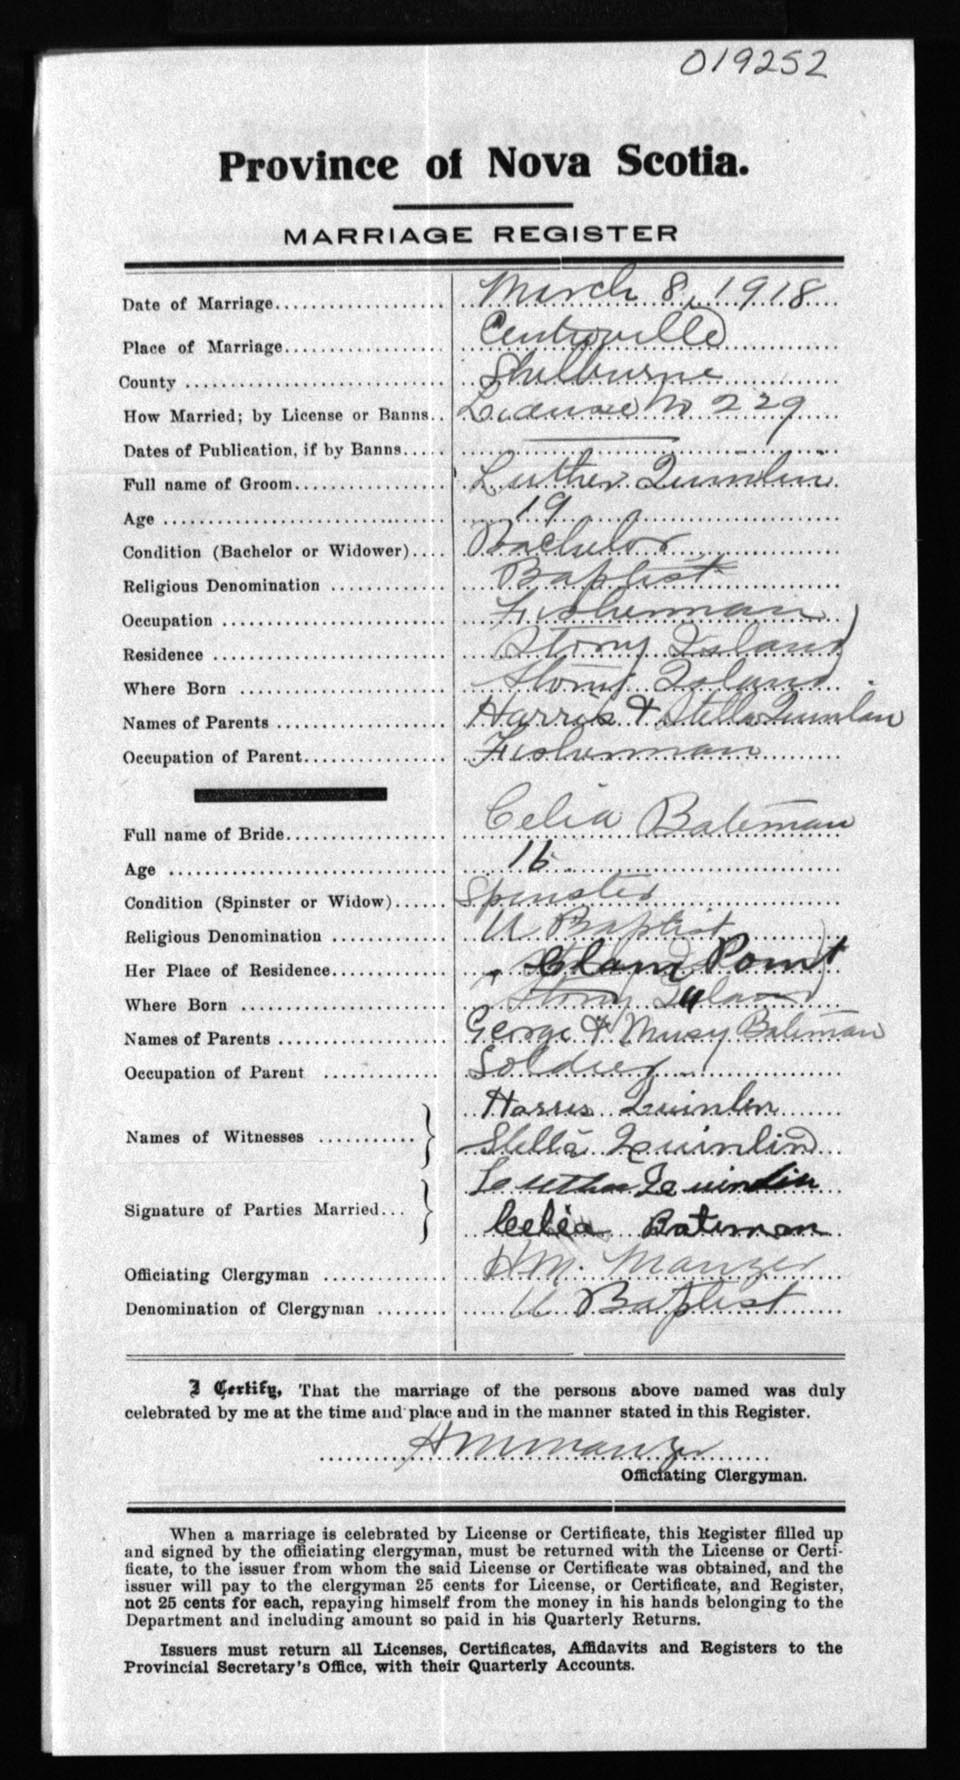 019252
Province of Nova Scotia.
MARRIAGE REGISTER
Date of Marriage................... March 8, 1918
Place of Marriage.................. Centreville
County ............................ Shelburne
How Married; by License or Banns.. License No 229
Dates of Publication, if by Banns.....
Full name of Groom................. Luther Quinlin
Age ............................... 19
Condition (Bachelor or Widower).... Bachelor
Religious Denomination ............ Baptist
Occupation ........................ Fisherman
Residence ......................... Stony Island
Where Born ........................ Stony Island
Names of Parents .................. Harris & Stella Quinlan
Occupation of Parent............... Fisherman
Full name of Bride................. Celia Bateman
Age ............................... 16
Condition (Spinster or Widow)...... Spinster
Religious Denomination ............ U Baptist
Her Place of Residence............. Clam Point
Where Born ........................ Stony Island "
Names of Parents .................. George & Bateman
Occupation of Parent .............. Soldier
Harris Quinlin
Names of Witnesses ...........
Stella Quinlin
Luther Quinlin
Signature of Parties Married...
Celia Bateman
Officiating Clergyman ............. H M. Manzer
Denomination of Clergyman ........ U Baptist
I Certify, That the marriage of the persons above named was duly
celebrated by me at the time and place and in the manner stated in this Register.
H M Manzer
Officiating Clergyman.
When a marriage is celebrated by License or Certificate, this Register filled up
and signed by the officiating clergyman, must be returned with the License or Certi-
ficate, to the issuer from whom the said License or Certificate was obtained, and the
issuer will pay to the clergyman 25 cents for License, or Certificate, and Register,
not 25 cents for each, repaying himself from the money in his hands belonging to the
Department and including amount so paid in his Quarterly Returns.
Issuers must return all Licenses, Certificates, Affidavits and Registers to the
Provincial Secretary's Office, with their Quarterly Accounts.